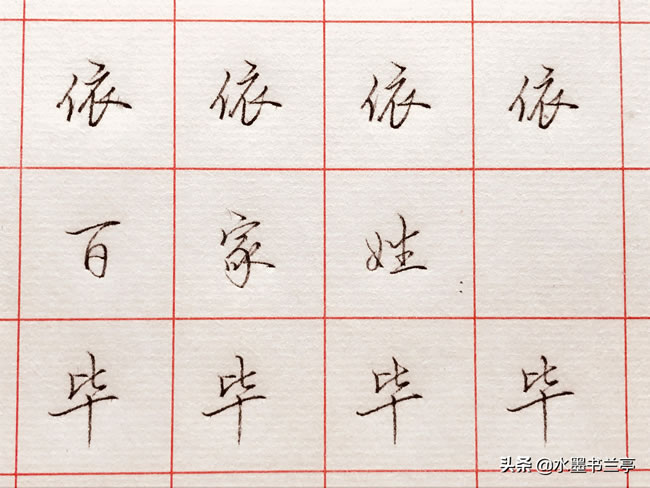 依 依 依 依
百 家 姓 :
毕 毕 毕 毕
头条 @水墨书兰亭